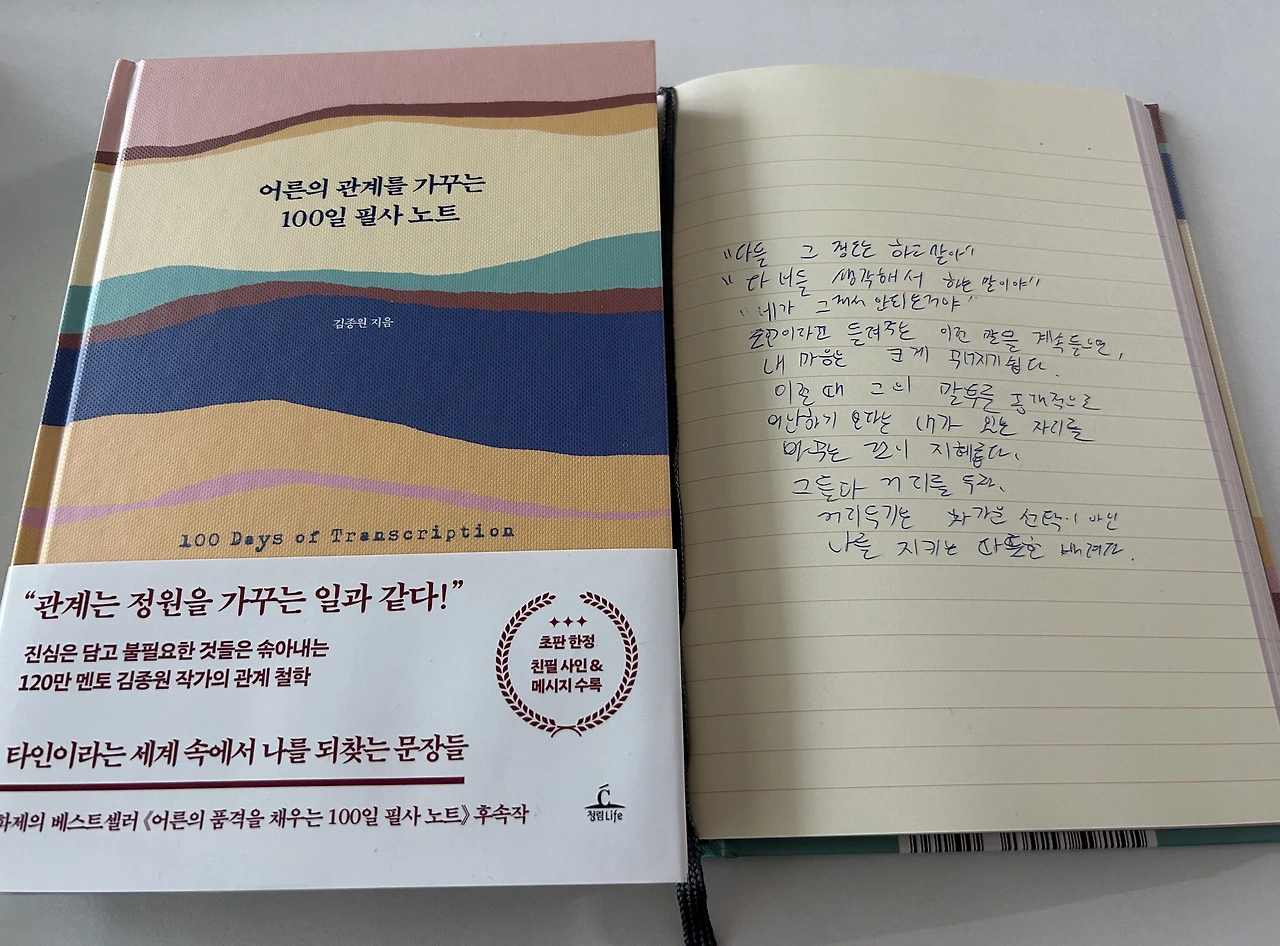 어른의 관계를 가꾸는
100일 필사 노트
김종원 지음
100 Days of Transcription
“관계는 정원을 가꾸는 일과 같다!”
진심은 담고 불필요한 것들은 솎아내는
120만 멘토 김종원 작가의 관계 철학
초판 한정
친필 사인 &
메시지 수록
타인이라는 세계 속에서 나를 되찾는 문장들
화제의 베스트셀러 《어른의 품격을 채우는 100일 필사 노트》 후속작
청림Life
"다들 그 정도는 하고 말아"
"다 너를 생각해서 하는 말이야"
"네가 그래서 안되는거야"
들려주는 이런 말을 계속 들으면,
내 마음은 크게 무너지기 쉽다.
이럴 때 그의 말투를 공개적으로
비난하기 보다는 내가 있는 자리를
바꾸는 것이 지혜롭다.
거리를 두라.
거리두기는 차가운 선택이 아닌
나를 지키는 따뜻한 배려다.